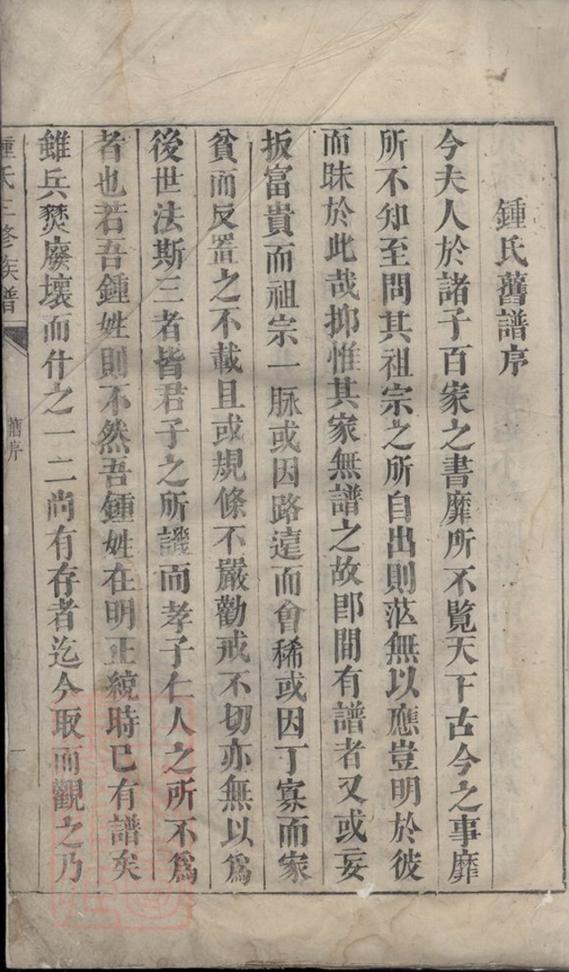 鍾氏舊譜序
今夫人於諸子百家之書靡所不覽天下古今之事靡
所不知至問其祖宗之所自出則茫無以應豈明於彼
而昧於此哉抑惟其家無譜之故即間有譜者又或妄
扳富貴而祖宗一脉或因路遠而會稀或因丁寡而家
貧而反置之不載且或規條不嚴勸戒不切亦無以爲
後世法斯三者皆君子之所譏而孝子仁人之所不爲
者也若吾鍾姓則不然吾鍾姓在明正統時已有譜矣
雖兵燹廢壞而什之一二尚有存者迄今取而觀之乃
鍾氏三修族譜
舊序
一